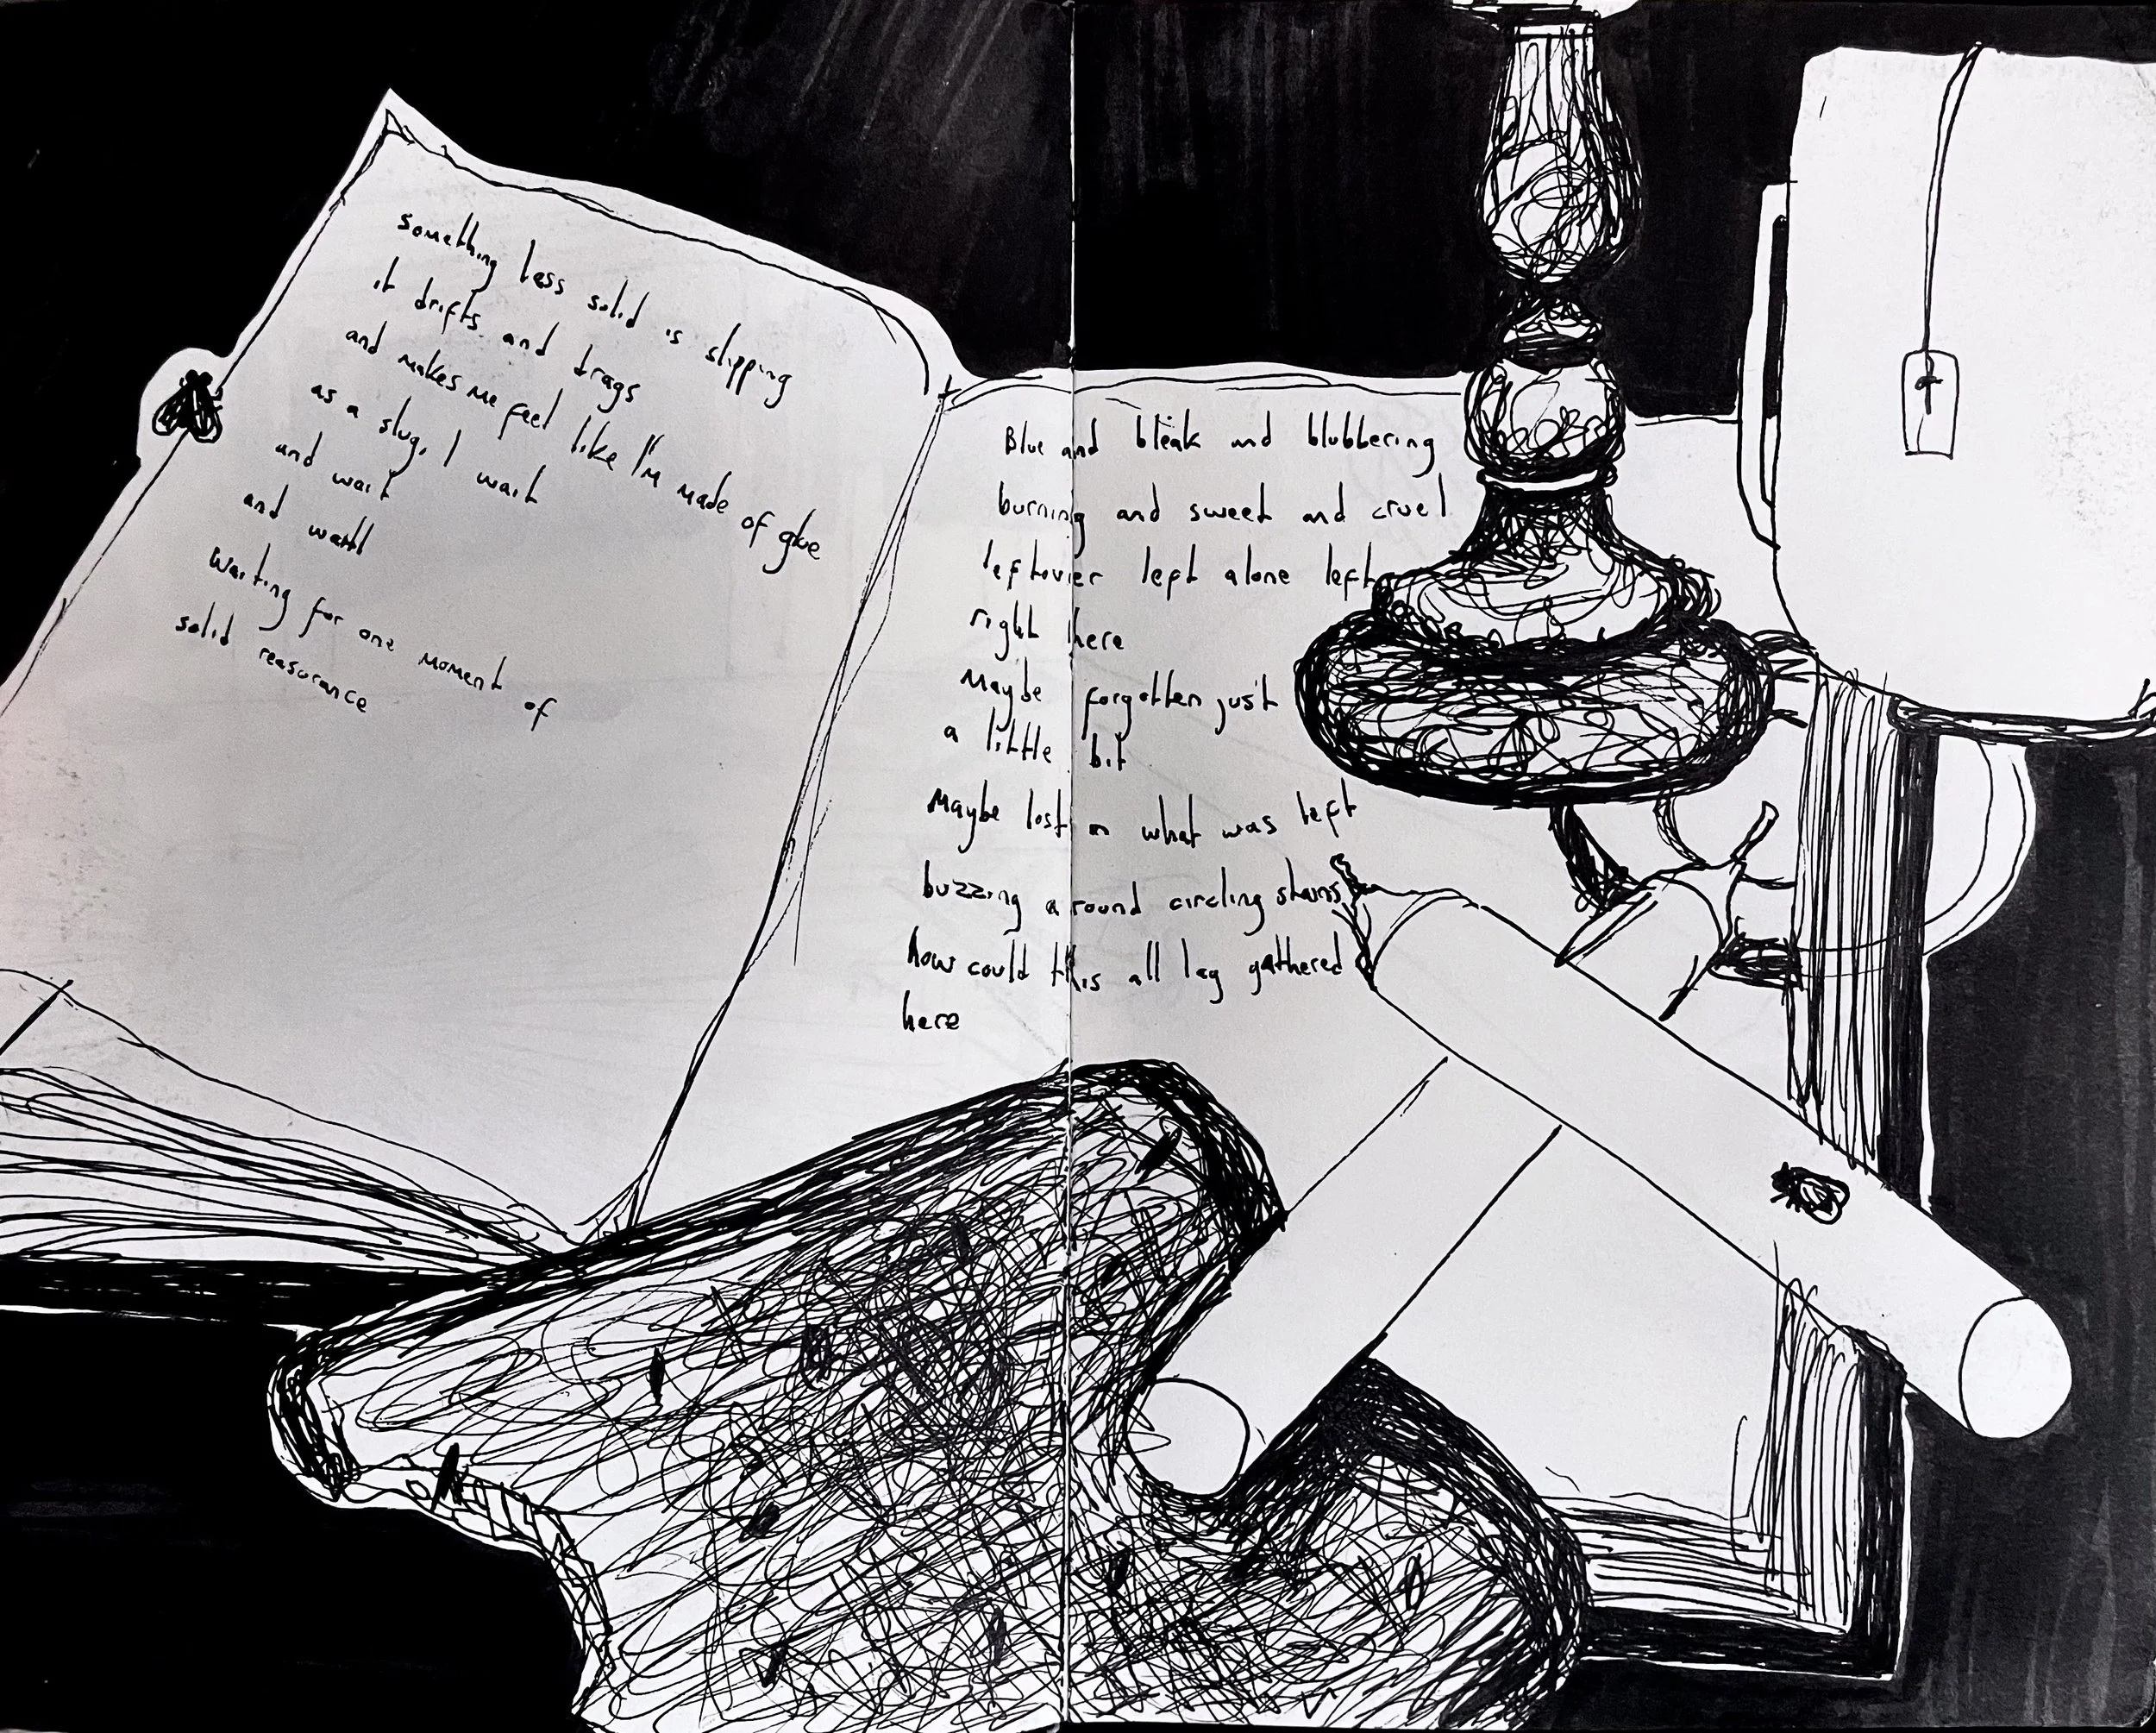 something less solid is slipping
it drifts and drags
and makes me feel like I'm made of glue
as a slug, I wait
and wait
and wait
waiting for one moment of
solid reasurance
Blue and bleak and blubbering
burning and sweet and cruel
leftover left alone left
right here
Maybe forgotten just
a little bit
Maybe lost in what was left
buzzing around circling stains
how could this all lag gathered
here